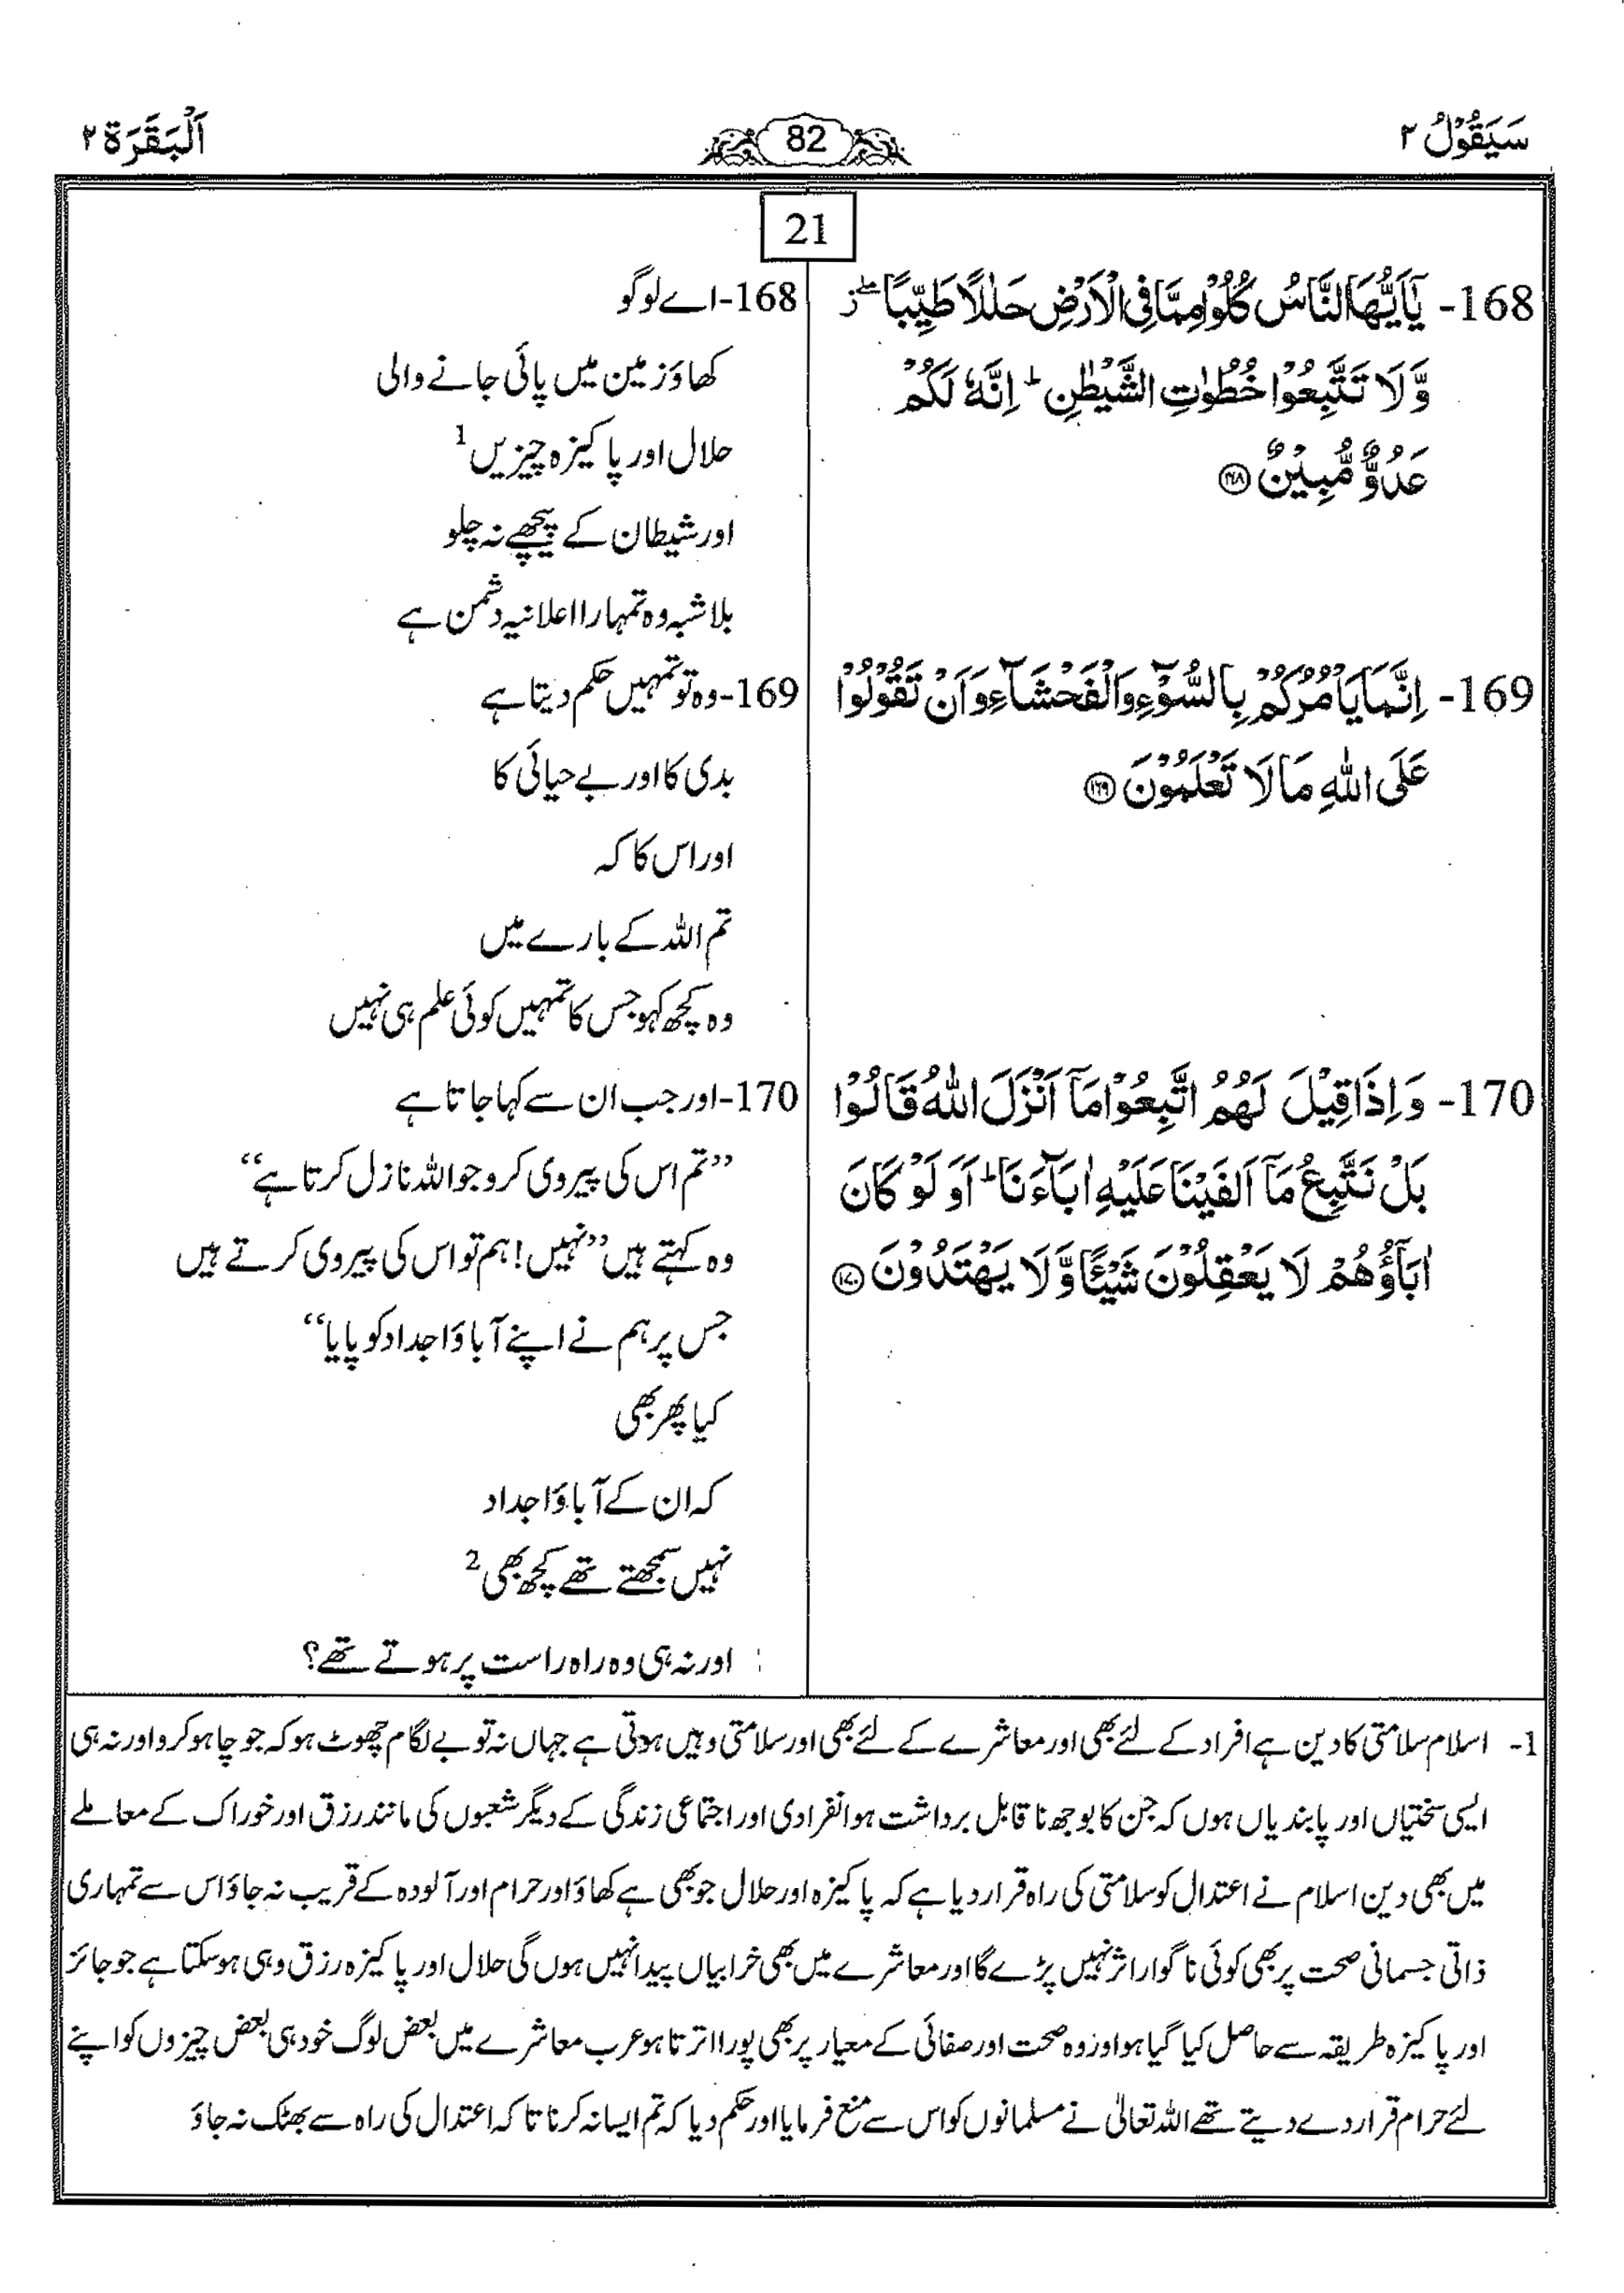 سَيَقُوْلُ ۲
82
اَلْبَقَرَة ۲
21
168- يٰۤاَيُّهَا النَّاسُ كُلُوْا مِمَّا فِى الْاَرْضِ حَلٰلًا طَيِّبًا ۖ ز
وَّلَا تَتَّبِعُوْا خُطُوٰتِ الشَّيْطٰنِ ؕ اِنَّهٗ لَكُمْ
عَدُوٌّ مُّبِيْنٌ ۝۱۶۸
169- اِنَّمَا يَاْمُرُكُمْ بِالسُّوْٓءِ وَالْفَحْشَآءِ وَاَنْ تَقُوْلُوْا
عَلَى اللّٰهِ مَا لَا تَعْلَمُوْنَ ۝۱۶۹
170- وَاِذَا قِيْلَ لَهُمُ اتَّبِعُوْا مَاۤ اَنْزَلَ اللّٰهُ قَالُوْا
بَلْ نَتَّبِعُ مَاۤ اَلْفَيْنَا عَلَيْهِ اٰبَآءَنَا ؕ اَوَلَوْ كَانَ
اٰبَآؤُهُمْ لَا يَعْقِلُوْنَ شَيْـًٔا وَّلَا يَهْتَدُوْنَ ۝۱۷۰
168-اے لوگو
کھاؤ زمین میں پائی جانے والی
حلال اور پاکیزہ چیزیں 1
اور شیطان کے پیچھے نہ چلو
بلاشبہ وہ تمہارا اعلانیہ دشمن ہے
169-وہ تو تمہیں حکم دیتا ہے
بدی کا اور بے حیائی کا
اور اس کا کہ
تم اللہ کے بارے میں
وہ کچھ کہو جس کا تمہیں کوئی علم ہی نہیں
170-اور جب ان سے کہا جاتا ہے
”تم اس کی پیروی کرو جو اللہ نازل کرتا ہے“
وہ کہتے ہیں ”نہیں! ہم تو اس کی پیروی کرتے ہیں
جس پر ہم نے اپنے آباؤاجداد کو پایا“
کیا پھر بھی
کہ ان کے آباؤاجداد
نہیں سمجھتے تھے کچھ بھی 2
اور نہ ہی وہ راہ راست پر ہوتے تھے؟
1- اسلام سلامتی کا دین ہے افراد کے لئے بھی اور معاشرے کے لئے بھی اور سلامتی وہیں ہوتی ہے جہاں نہ تو بے لگام چھوٹ ہو کہ جو چاہو کرو اور نہ ہی
ایسی سختیاں اور پابندیاں ہوں کہ جن کا بوجھ نا قابل برداشت ہو انفرادی اور اجتماعی زندگی کے دیگر شعبوں کی مانند رزق اور خوراک کے معاملے
میں بھی دین اسلام نے اعتدال کو سلامتی کی راہ قرار دیا ہے کہ پاکیزہ اور حلال جو بھی ہے کھاؤ اور حرام اور آلودہ کے قریب نہ جاؤ اس سے تمہاری
ذاتی جسمانی صحت پر بھی کوئی ناگوار اثر نہیں پڑے گا اور معاشرے میں بھی خرابیاں پیدا نہیں ہوں گی حلال اور پاکیزہ رزق وہی ہو سکتا ہے جو جائز
اور پاکیزہ طریقہ سے حاصل کیا گیا ہو اور وہ صحت اور صفائی کے معیار پر بھی پورا اترتا ہو عرب معاشرے میں بعض لوگ خود ہی بعض چیزوں کو اپنے
لئے حرام قرار دے دیتے تھے اللہ تعالیٰ نے مسلمانوں کو اس سے منع فرمایا اور حکم دیا کہ تم ایسا نہ کرنا تا کہ اعتدال کی راہ سے بھٹک نہ جاؤ